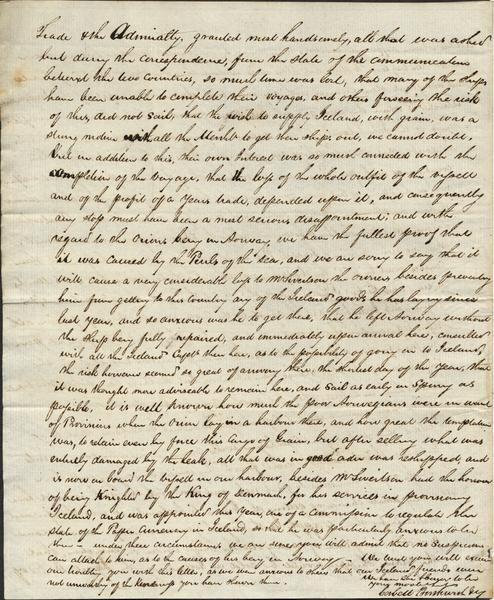 Trade & the Admiralty, granted most handsomely, all that was asked
but during the correspondence, from the state of the communication
between the two Countries, so much time was lost, that many of the Ships
have been unable to complete their voyages, and others forseeing the risk
of this, did not sail, that the wish to supply Iceland, with grain, was a
strong motive with all the Merchts to get their ships out, we cannot doubt.
but in addition to this their own Interest was so much connected with the
completion of the Voyage, that the loss of the whole outfit of the Vessell
and of the profit of a Years trade, depended upon it, and consequently
any stop must have been a most serious disappointment; and with
regard to the Orion being in Norway, we have the fullest proof that
it was caused by the Perils of the Sea, and we are sorry to say that it
will cause a very considerable loss to Mr Sivertson the owner besides preventing
him from getting to this Country any of the Iceland goods he has laying since
last Year, and so anxious was he to get there, that he left Norway without
the Ship being fully repaired, and immediately upon arrival here, consulted
with all the Iceland Captns then here, as to the possibility of going on to Iceland,
the risk however seemed so great of arriving there, the shortest day of the Year, that
it was thought more adviseable to remain here, and Sail as early in Spring as
possible, it is well known how much the poor Norwegians were in want
of Provisions when the Orion lay in a harbour there, and how great the temptation
was, to retain even by force this Cargo of Grain, but after selling what was
entirely damaged by the leak, all that was in good order was reshipped, and
is now on board the Vessell in our harbour, besides Mr Sivertson had the honour
of being Knighted by the King of Denmark, for his services in provisioning
Iceland, and was appointed this Year, one of a Commission to regulate the
state of the Paper Currency in Iceland, so that he was particularly anxious to be
there — under these circumstances we are sure you will admit that no suspicion
can attach to him, as to the causes of his being in Norway — We trust you will excuse
our troubling you with this letter, as we were anxious to shew that our Iceland friends were
not unworthy of the kindness you have shewn them. We have the honor to be
your most